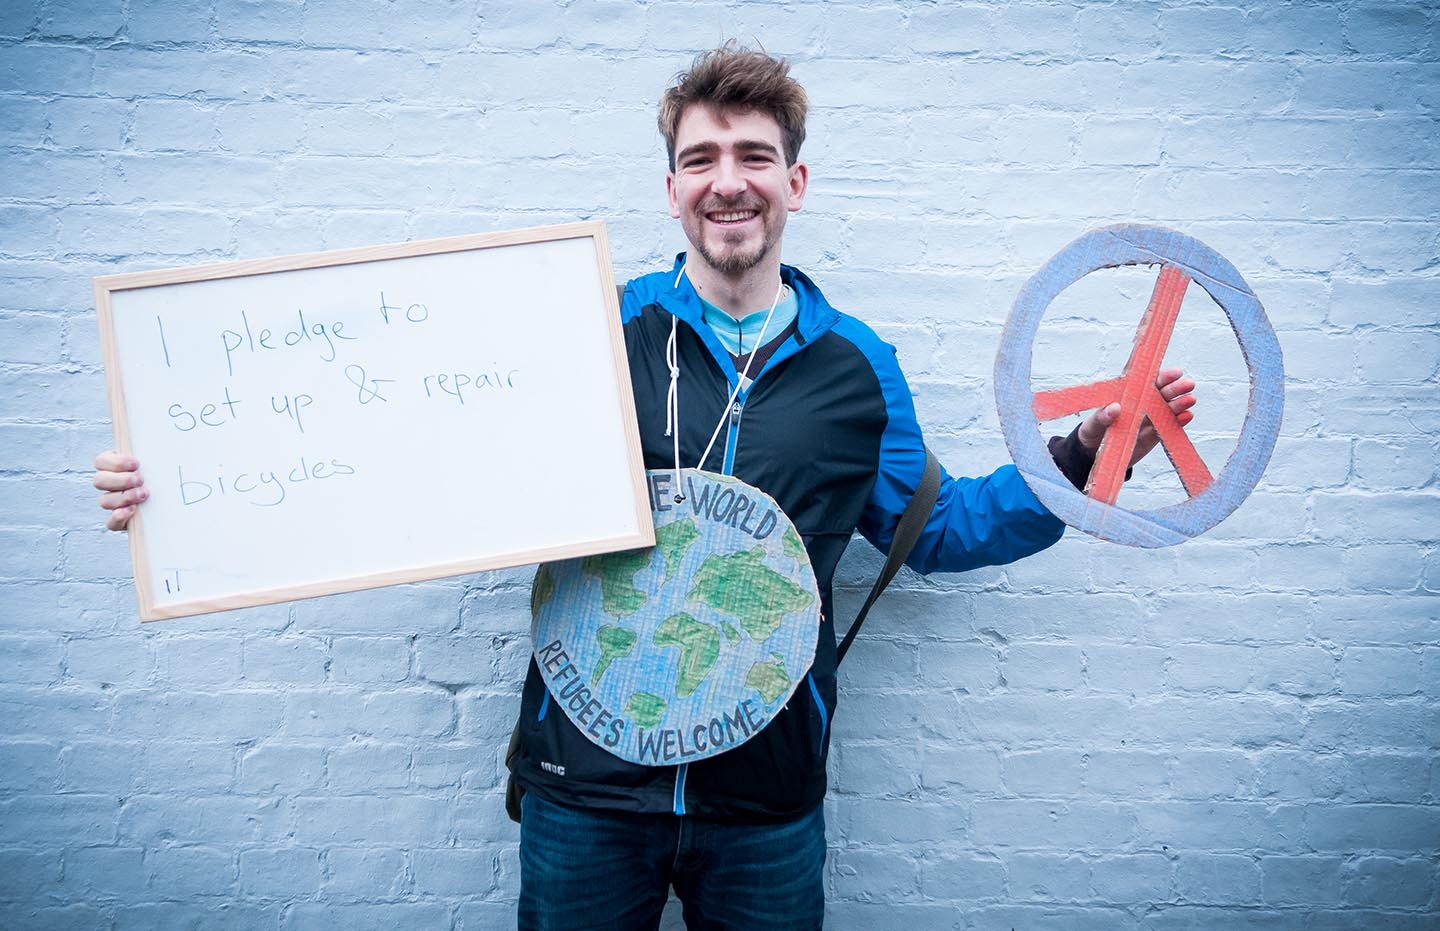 I pledge to
set up & repair
bicycles
WORLD
REFUGEES WELCOME